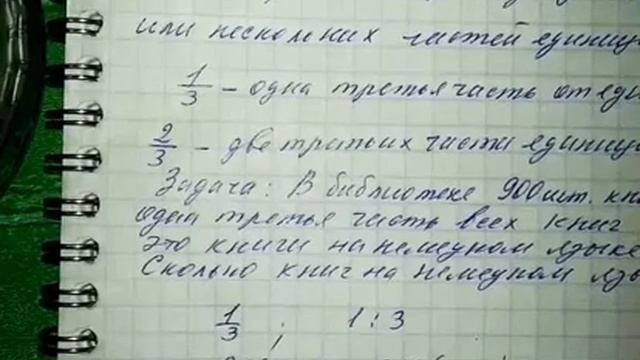 или нескольких частей единицы
1/3 – одна третья часть от еди
2/3 – две третьих части единицы
Задача: В библиотеке 900 шт. кни
одна третья часть всех книг
это книги на немецком языке
Сколько книг на немецком язы
1/3 ; 1 : 3